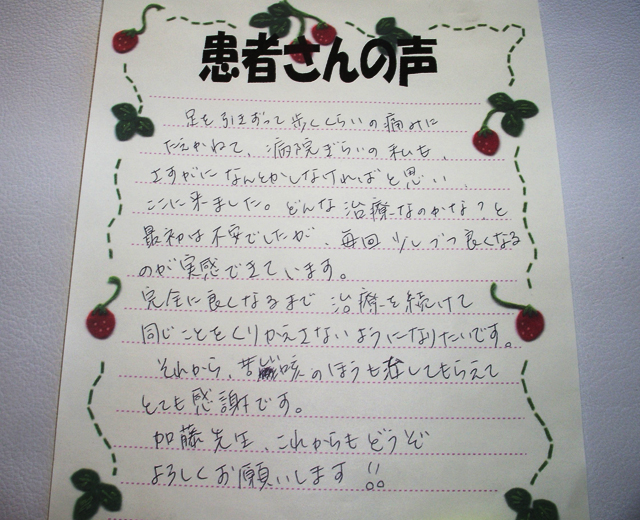 患者さんの声
足を引きずって歩くくらいの痛みに
たえかねて、病院ぎらいの私も、
さすがになんとかしなければと思い、
ここに来ました。どんな治療なのかな?と
最初は不安でしたが、毎回少しづつ良くなる
のが実感できています。
完全に良くなるまで治療を続けて
同じことをくりかえさないようになりたいです。
それから、咳のほうも してもらえて
とても感謝です。
加藤先生、これからもどうぞ
よろしくお願いします!!